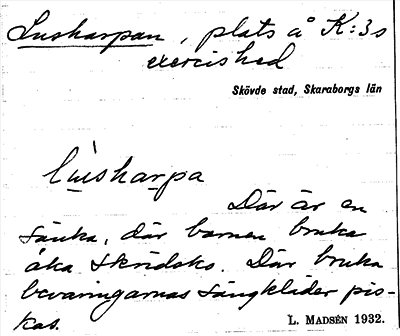 Lusharpan, plats å K:3s
exercished
Skövde stad, Skaraborgs län
lùsharpa
Där är en
sänka, där barnen bruka
åka skridsko. Där bruka
bevaringarnas sängkläder pis-
kas.
L. MADSÉN 1932.